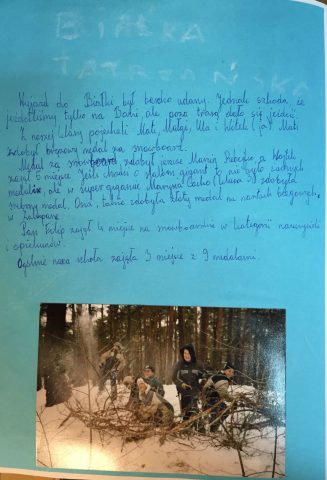 BIAŁKA
TATRZAŃSKA
Wyjazd do Białki był bardzo udany. Jednak szkoda, że
jeździliśmy tylko na Bani, ale poza trasą dało się jeździć.
Z naszej klasy pojechali Mati, Małgo, Ula i Wojtek i ja. Mati
zdobył brązowy medal za snowboard.
Medal za snowboard zdobył również Marcin, a Wojtek
zajął 5 miejsce. Jeśli chodzi o slalom gigant to nie było żadnych
medali, ale w super gigancie Martyna zdobyła
srebrny medal. Ona także zdobyła złoty medal na nartach biegowych
w Zakopane.
Pan Filip zajął 4 miejsce na snowboardzie w kategorii nauczycieli
i opiekunów.
Ogólnie nasza szkoła zajęła 3 miejsce z 9 medalami.